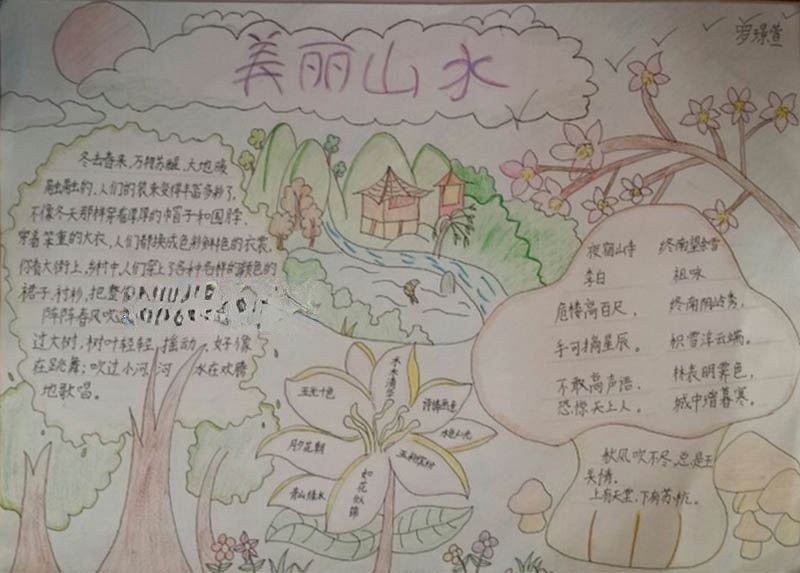 美丽山水
罗璟萱
冬去春来,万物苏醒,大地暖
融融的,人们的装束变得丰富多彩了,
不像冬天那样穿着厚厚的帽子和围脖,
穿着笨重的大衣,人们都换成色彩鲜艳的衣裳,
你看大街上,乡村中,人们穿上了各种各样的颜色的
裙子,衬衫,把整
阵阵春风吹
过大树,树叶轻轻摇动,好像
在跳舞;吹过小河,河水在欢腾
地歌唱。
夜宿山寺
李白
危楼高百尺,
手可摘星辰。
不敢高声语,
恐惊天上人。
终南望余雪
祖咏
终南阴岭秀,
积雪浮云端。
林表明霁色,
城中增暮寒。
秋风吹不尽,总是玉
关情。
上有天堂,下有苏杭。
水木清华
五光十色
诗情画意
水色山光
月夕花朝
五彩缤纷
青山绿水
如花似锦